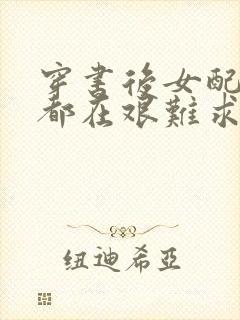 穿書後女配
都在艱難求
纽迪希亞